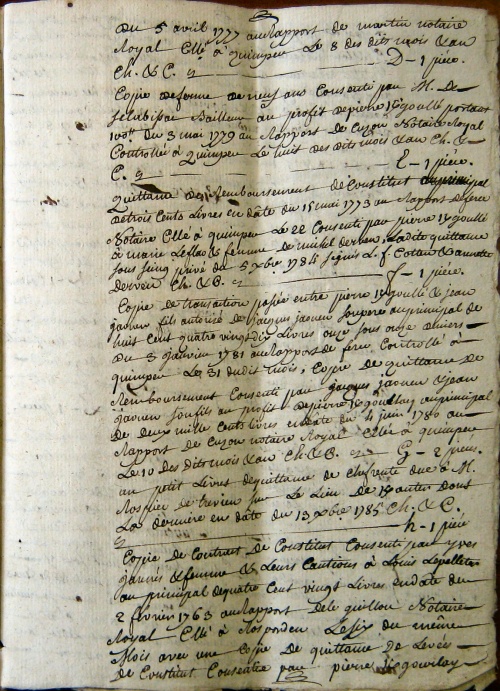 Du 5 avril 1777 au Rapport de martin notaire
Royal Cllé à quimper Le 8 des dits mois & an
Ch. & C. D - 1 piece.
Copie de ferme de neuf ans Consenti par M. De
Bailleur au profit de pierre portant
100ᵗᵗ du 3 mai 1779 au Rapport de Cuzon Notaire Royal
Controllée à Quimper Le huit des dits mois & an Ch. &
C. E - 1 piece.
Quittance de Remboursement de Constitut au principal
de trois Cents Livres en date du 15 mai 1773 au Rapport de
Notaire Cllé à quimper Le 22 Consenti par pierre
à marie Leflao & femme de michel derrien. Ladite quittance
sous seing privé du 5 xbre 1784 signés L. f. Cottan &
derrien Ch. & B. f - 1 piece.
Copie de transaction passée entre pierre & jean
jaouen fils autorisé de jacques jaouen son pere au principal de
huit Cent quatre vingt dix Livres onze sous onze deniers
du 3 janvier 1781 au Rapport de Controllé à
quimper Le 31 du dit mois, Copie de quittance de
Remboursement Consenti par jacques jaouen & jean
jaouen son fils au profit de pierre au principal
de deux mille Cents Livres en date du 4 juin 1786 au
Rapport de Cuzon notaire Royal Cllée à quimper
Le 10 des dits mois & an Ch. & B. G - 2 pieces.
un petit Livret de quittance de Chefrente due à M.
Rospiec de trevien sur Le Lieu de dont
La derniere en date du 13 xbre 1785 Ch. & C.
h - 1 piece
Copie de Contrat de Constitut Consenti par yves
& femme & Leurs Cautions à Louis Lepelleter
au principal de quatre Cent vingt Livres en date du
2 fevrier 1763 au Rapport de le guillou Notaire
Royal Cllé à Rosporden Le six du même
Mois avec une Copie de quittance de Levée
de Constitut Consentie par pierre